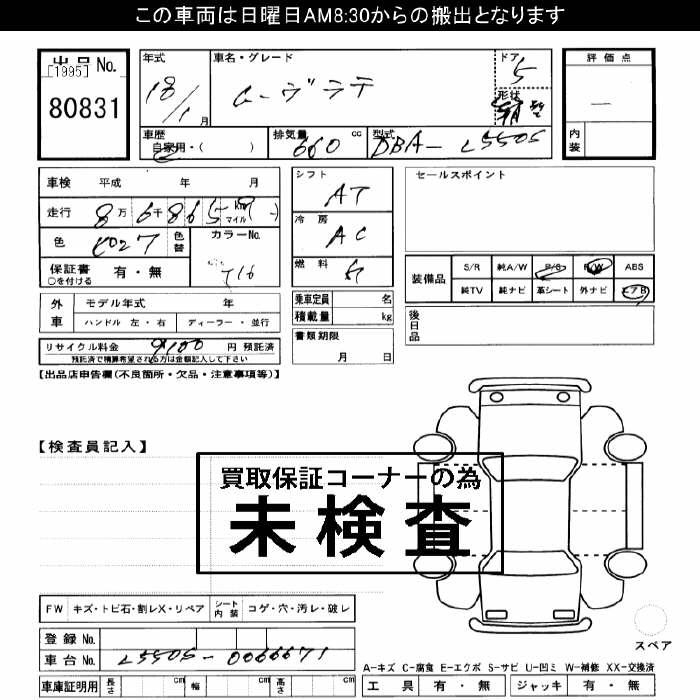 この車両は日曜日AM8:30からの搬出となります
出品 No.
[1995]
80831
年式
18/1 月
車名・グレード
ムーヴラテ
ドア
5
形状
評価点
内装
車歴
自家用・( )
排気量
660 cc
型式
DBA- L550S
車検 平成 年 月
走行 8万6千865 km マイル
色
色替
カラーNo.
T16
保証書
○を付ける
有・無
シフト
AT
冷房
AC
燃料
ガ
乗車定員 名
積載量 kg
書類期限
月 日
セールスポイント
装備品
S/R 純A/W P/S P/W ABS
純TV 純ナビ 革シート 外ナビ エアB
後日品
外車
モデル年式 年
ハンドル 左・右 ディーラー・並行
リサイクル料金 9100 円 預託済
預託済で精算希望される方は金額記入して下さい
【出品店申告欄(不良箇所・欠品・注意事項等)】
【検査員記入】
買取保証コーナーの為
未検査
FW キズ・トビ石・割レX・リペア シート内装 コゲ・穴・汚レ・破レ
登録 No.
車台 No. L550S-0066671
車庫証明用 長さ cm 幅 cm 高さ cm
スペア
A-キズ C-腐食 E-エクボ S-サビ U-凹ミ W-補修 XX-交換済
工具 有・無 ジャッキ 有・無